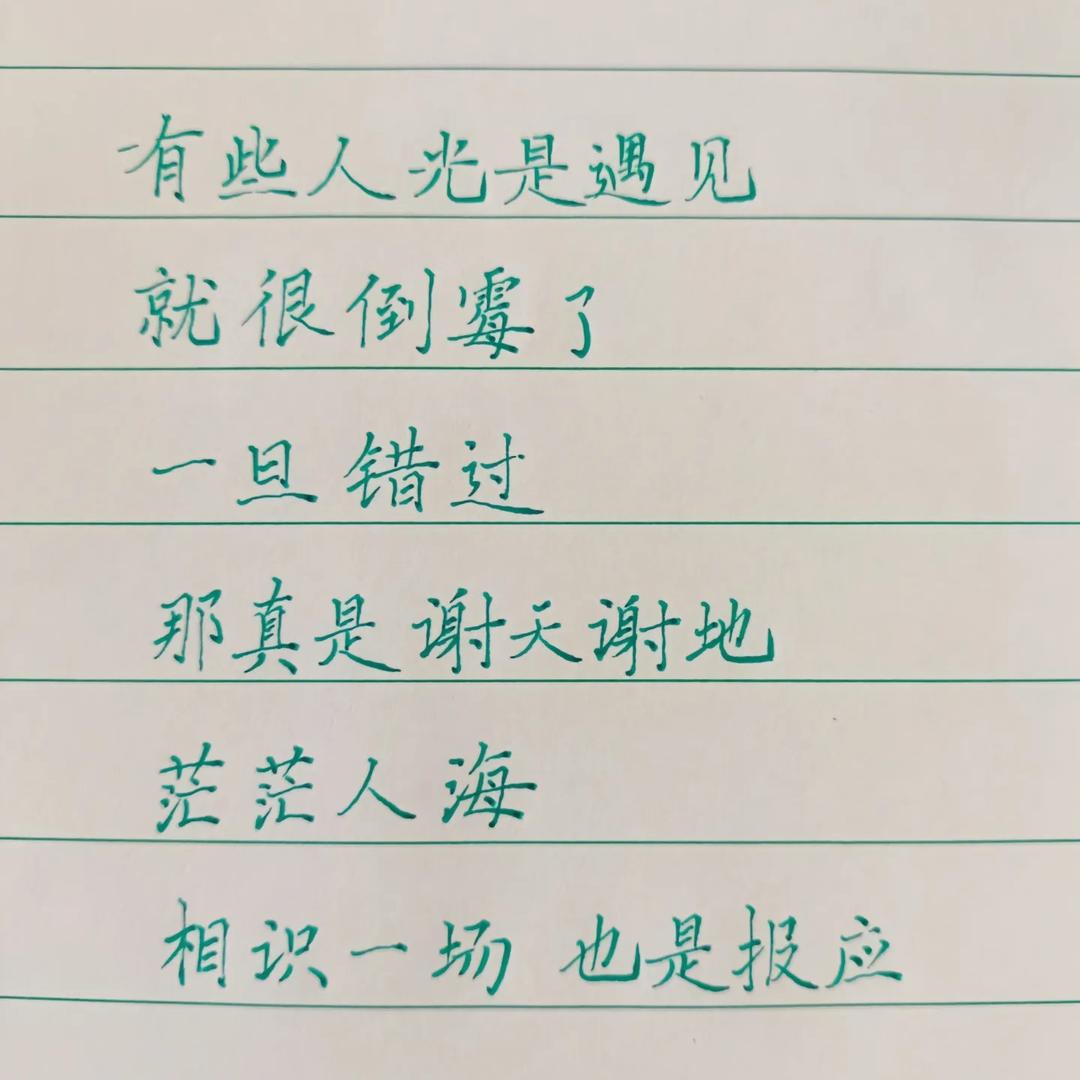 有些人光是遇见
就很倒霉了
一旦错过
那真是谢天谢地
茫茫人海
相识一场 也是报应